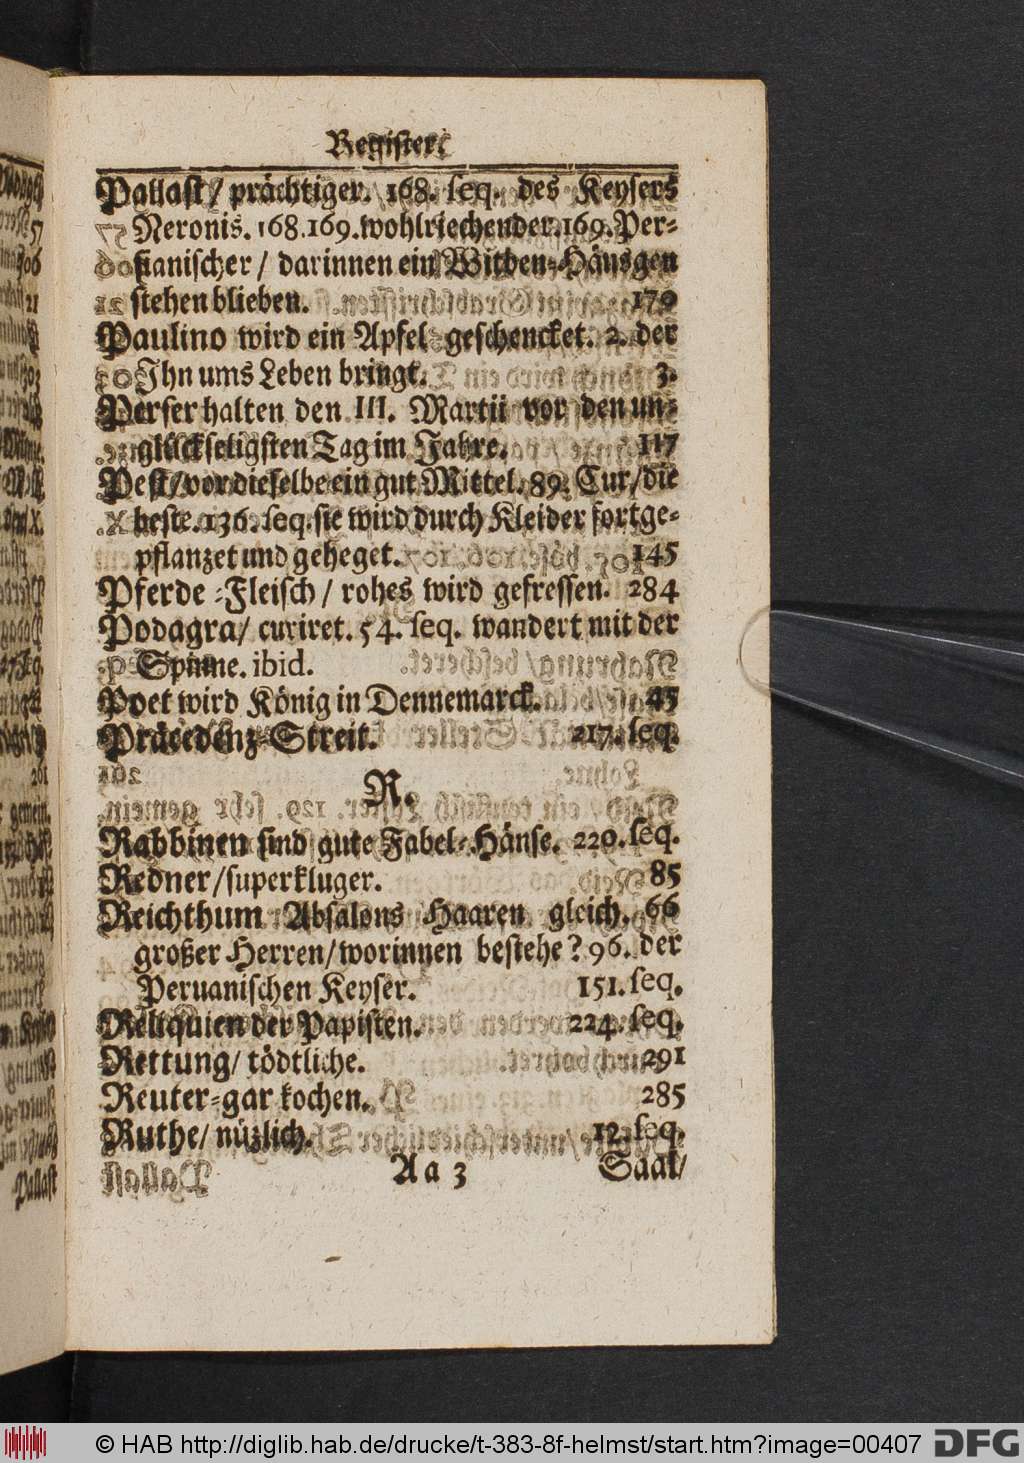 Register.
Pallast / prächtiger. 168. seq. des Keysers
Neronis. 168. 169. wohlriechender. 169. Per-
sianischer / darinnen ein Witben-Häusgen
stehen blieben. 170
Paulino wird ein Apfel geschencket. 2. der
Ihn ums Leben bringt. 3.
Perser halten den III. Martii vor den un-
glückseligsten Tag im Jahre. 117
Pest / vor dieselbe ein gut Mittel. 89. Cur / die
beste. 136. seq. sie wird durch Kleider fortge-
pflanzet und geheget. 145
Pferde-Fleisch / rohes wird gefressen. 284
Podagra / curiret. 54. seq. wandert mit der
Spinne. ibid.
Poet wird König in Dennemarck. 45
Präcedenz-Streit. 217. seq.
R.
Rabbinen sind gute Fabel-Hänse. 220. seq.
Redner / superkluger. 85
Reichthum Absalons Haaren gleich. 66
großer Herren / worinnen bestehe? 96. der
Peruanischen Keyser. 151. seq.
Reliquien der Papisten. 224. seq.
Rettung / tödtliche. 291
Reuter-gar kochen. 285
Ruthe / nüzlich. 12. seq.
Aa 3 Saal /
Pallast
© HAB http://diglib.hab.de/drucke/t-383-8f-helmst/start.htm?image=00407
DFG